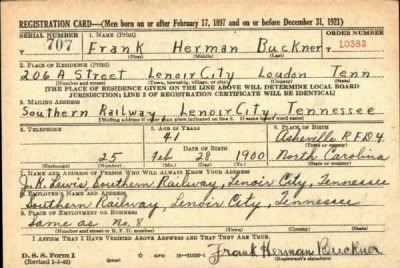 REGISTRATION CARD—(Men born on or after February 17, 1897 and on or before December 31, 1921)
SERIAL NUMBER 1. NAME (Print) ORDER NUMBER
707 Frank Herman Buckner 10383
(First) (Middle) (Last)
2. PLACE OF RESIDENCE (Print)
206 A Street Lenoir City Loudon Tenn
(Number and street) (Town, township, village, or city) (County) (State)
[THE PLACE OF RESIDENCE GIVEN ON THE LINE ABOVE WILL DETERMINE LOCAL BOARD
JURISDICTION; LINE 2 OF REGISTRATION CERTIFICATE WILL BE IDENTICAL]
3. MAILING ADDRESS
Southern Railway Lenoir City, Tennessee
[Mailing address if other than place indicated on line 2. If same insert word same]
4. TELEPHONE 5. AGE IN YEARS 6. PLACE OF BIRTH
41 Asheville R.F.D 4
DATE OF BIRTH (Town or county)
25 Feb 28 1900 North Carolina
(Exchange) (Number) (Mo.) (Day) (Yr.) (State or country)
7. NAME AND ADDRESS OF PERSON WHO WILL ALWAYS KNOW YOUR ADDRESS
J. K. Lewis, Southern Railway, Lenoir City, Tennessee
8. EMPLOYER'S NAME AND ADDRESS
Southern Railway, Lenoir City, Tennessee
9. PLACE OF EMPLOYMENT OR BUSINESS
Same as no. 8
(Number and street or R. F. D. number) (Town) (County) (State)
I AFFIRM THAT I HAVE VERIFIED ABOVE ANSWERS AND THAT THEY ARE TRUE.
D. S. S. Form 1
(Revised 1-1-42) (over) Frank Herman Buckner
(Registrant's signature)